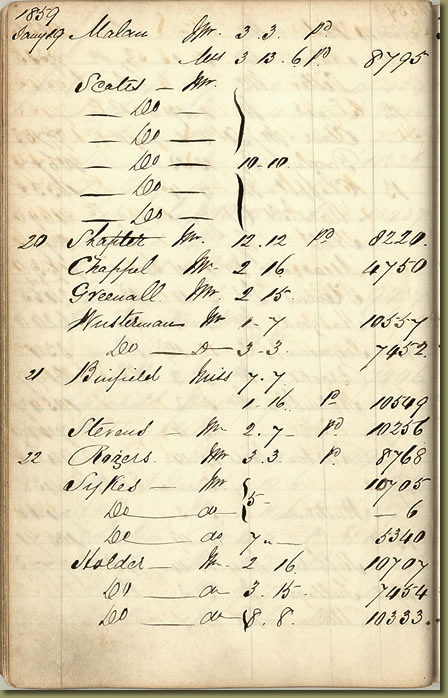 1859
Jany 19 Malan Mr. 3 . 3 . Pd
Mrs 3 13 . 6 Pd 8795
Scates — Mr.
— Do —
— Do —
— Do — 10 - 10 .
— Do —
— Do —
20 Shapter Mr. 12 . 12 Pd 8220.
Chappel Mr. 2 16 4750
Greenall Mr. 2 15 .
Wusterman Mr 1 - 7 10557
Do — D — 3 - 3 . 7452.
21 Binfield Miss 7 . 7
1 . 16 . Pd 10549
Stevens — Mr 2 . 7 — Pd 10256
22 Rogers . Mr 3 . 3 P. 8768
Sykes — Mr 5 - 10705
Do — do — 6
Do — do 7 „ — 5340
Holder — Mr. 2 16 10707
Do — do 3 . 15 . 7454
Do — do 8 . 8 . 10333.